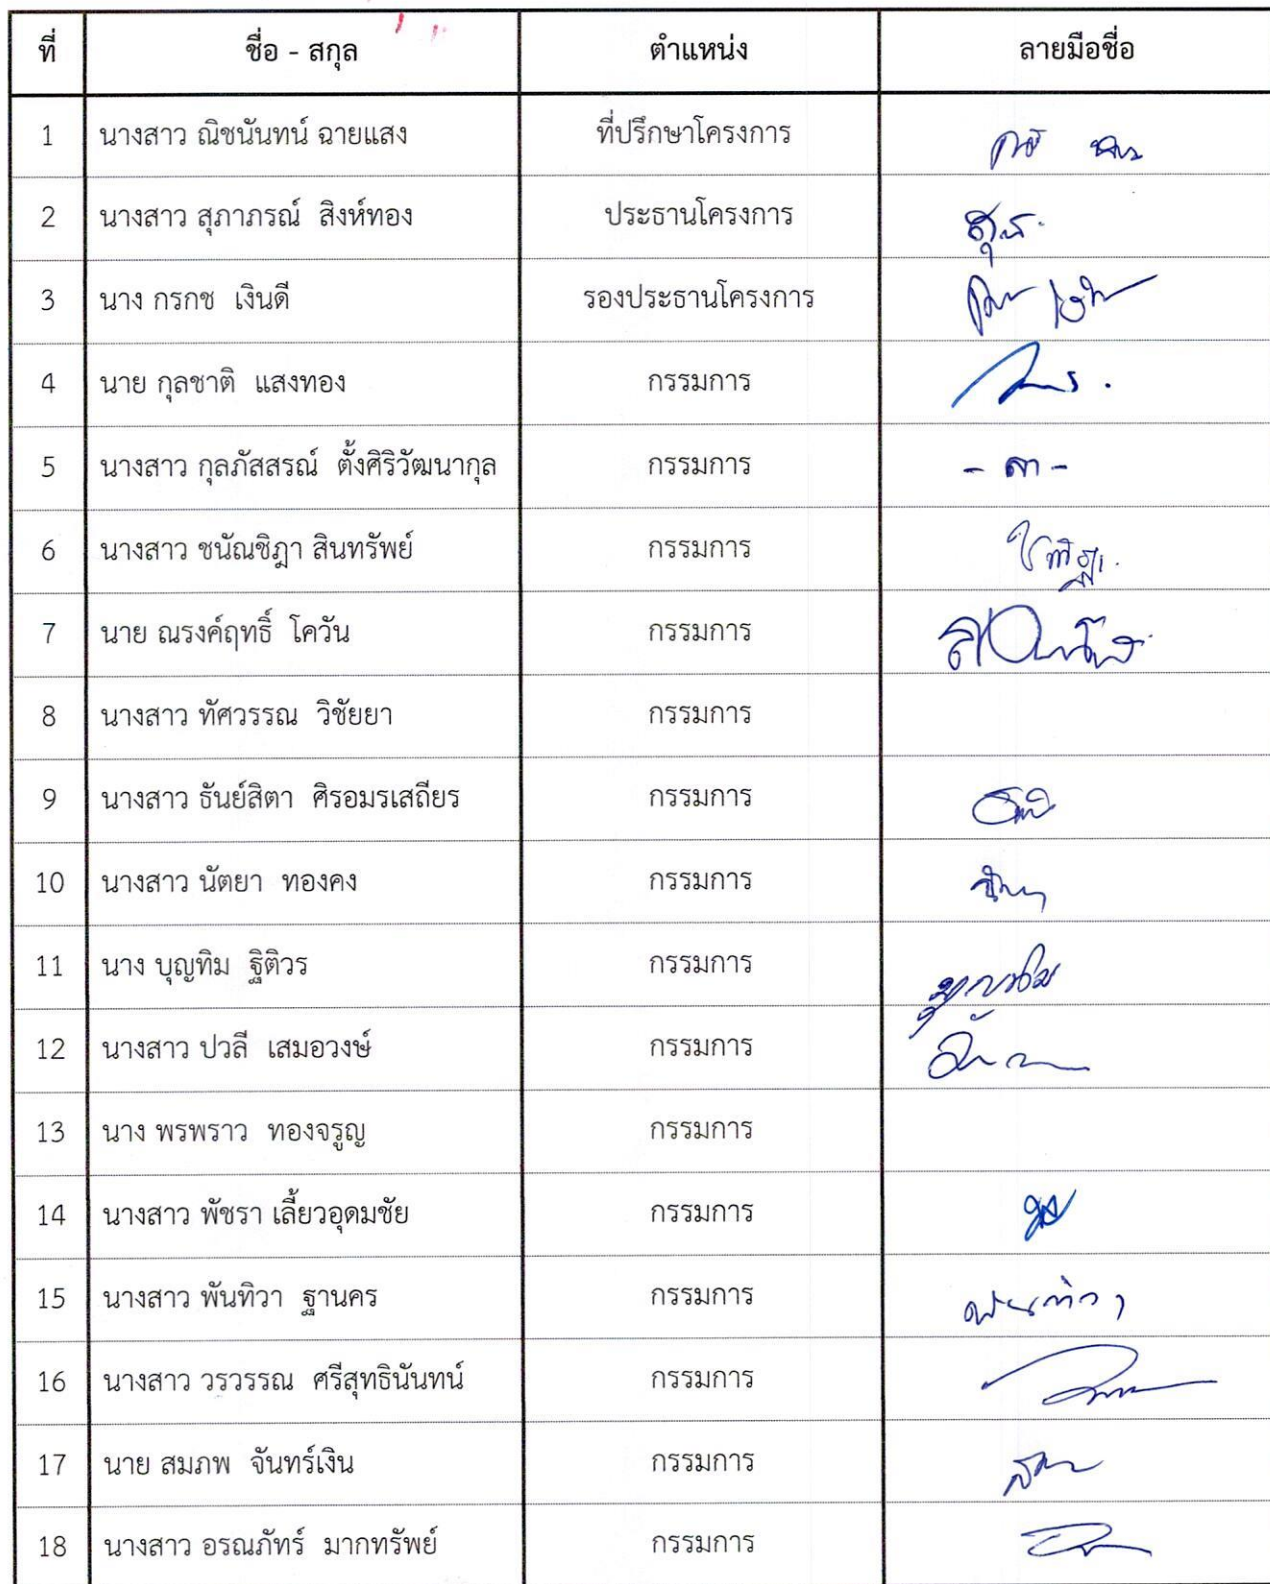 ที่ ชื่อ - สกุล ตำแหน่ง ลายมือชื่อ
1 นางสาว ณิชนันทน์ ฉายแสง ที่ปรึกษาโครงการ
2 นางสาว สุภาภรณ์ สิงห์ทอง ประธานโครงการ
3 นาง กรกช เงินดี รองประธานโครงการ
4 นาย กุลชาติ แสงทอง กรรมการ
5 นางสาว กุลภัสสรณ์ ตั้งศิริวัฒนากุล กรรมการ - ลา -
6 นางสาว ชนัณชิฎา สินทรัพย์ กรรมการ
7 นาย ณรงค์ฤทธิ์ โควัน กรรมการ
8 นางสาว ทัศวรรณ วิชัยยา กรรมการ
9 นางสาว ธันย์สิตา ศิรอมรเสถียร กรรมการ
10 นางสาว นัตยา ทองคง กรรมการ
11 นาง บุญทิม ฐิติวร กรรมการ บุญทิม
12 นางสาว ปวลี เสมอวงษ์ กรรมการ
13 นาง พรพราว ทองจรูญ กรรมการ
14 นางสาว พัชรา เลี้ยวอุดมชัย กรรมการ
15 นางสาว พันทิวา ฐานคร กรรมการ พันทิวา
16 นางสาว วรวรรณ ศรีสุทธินันทน์ กรรมการ
17 นาย สมภพ จันทร์เงิน กรรมการ
18 นางสาว อรณภัทร์ มากทรัพย์ กรรมการ